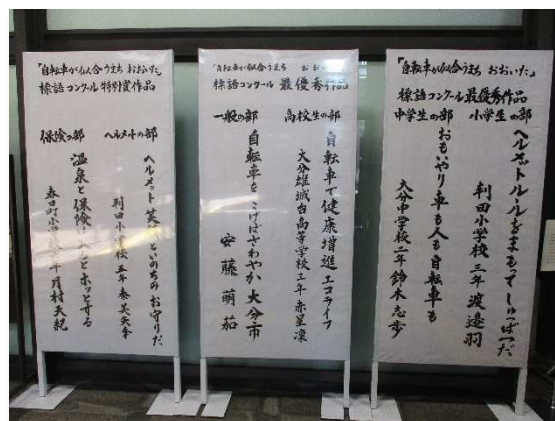 「自転車が似合うまち おおいた」
標語コンクール 最優秀作品
小学生の部
ヘルメットルールをまもってしゅっぱつだ
判田小学校 三年 渡邉 羽
中学生の部
おもいやり 車も人も自転車も
大分中学校 二年 鈴木 志歩
「自転車が似合うまち おおいた」
標語コンクール 最優秀作品
高校生の部
自転車で健康増進エコライフ
大分雄城台高等学校 三年 赤星 凛
一般の部
自転車を こげばさわやか 大分市
安藤 萌茄
「自転車が似合うまち おおいた」
標語コンクール 特別賞作品
ヘルメットの部
ヘルメット 笑顔といのちの お守りだ
判田小学校 五年
保険の部
温泉と保険
春日町小学校